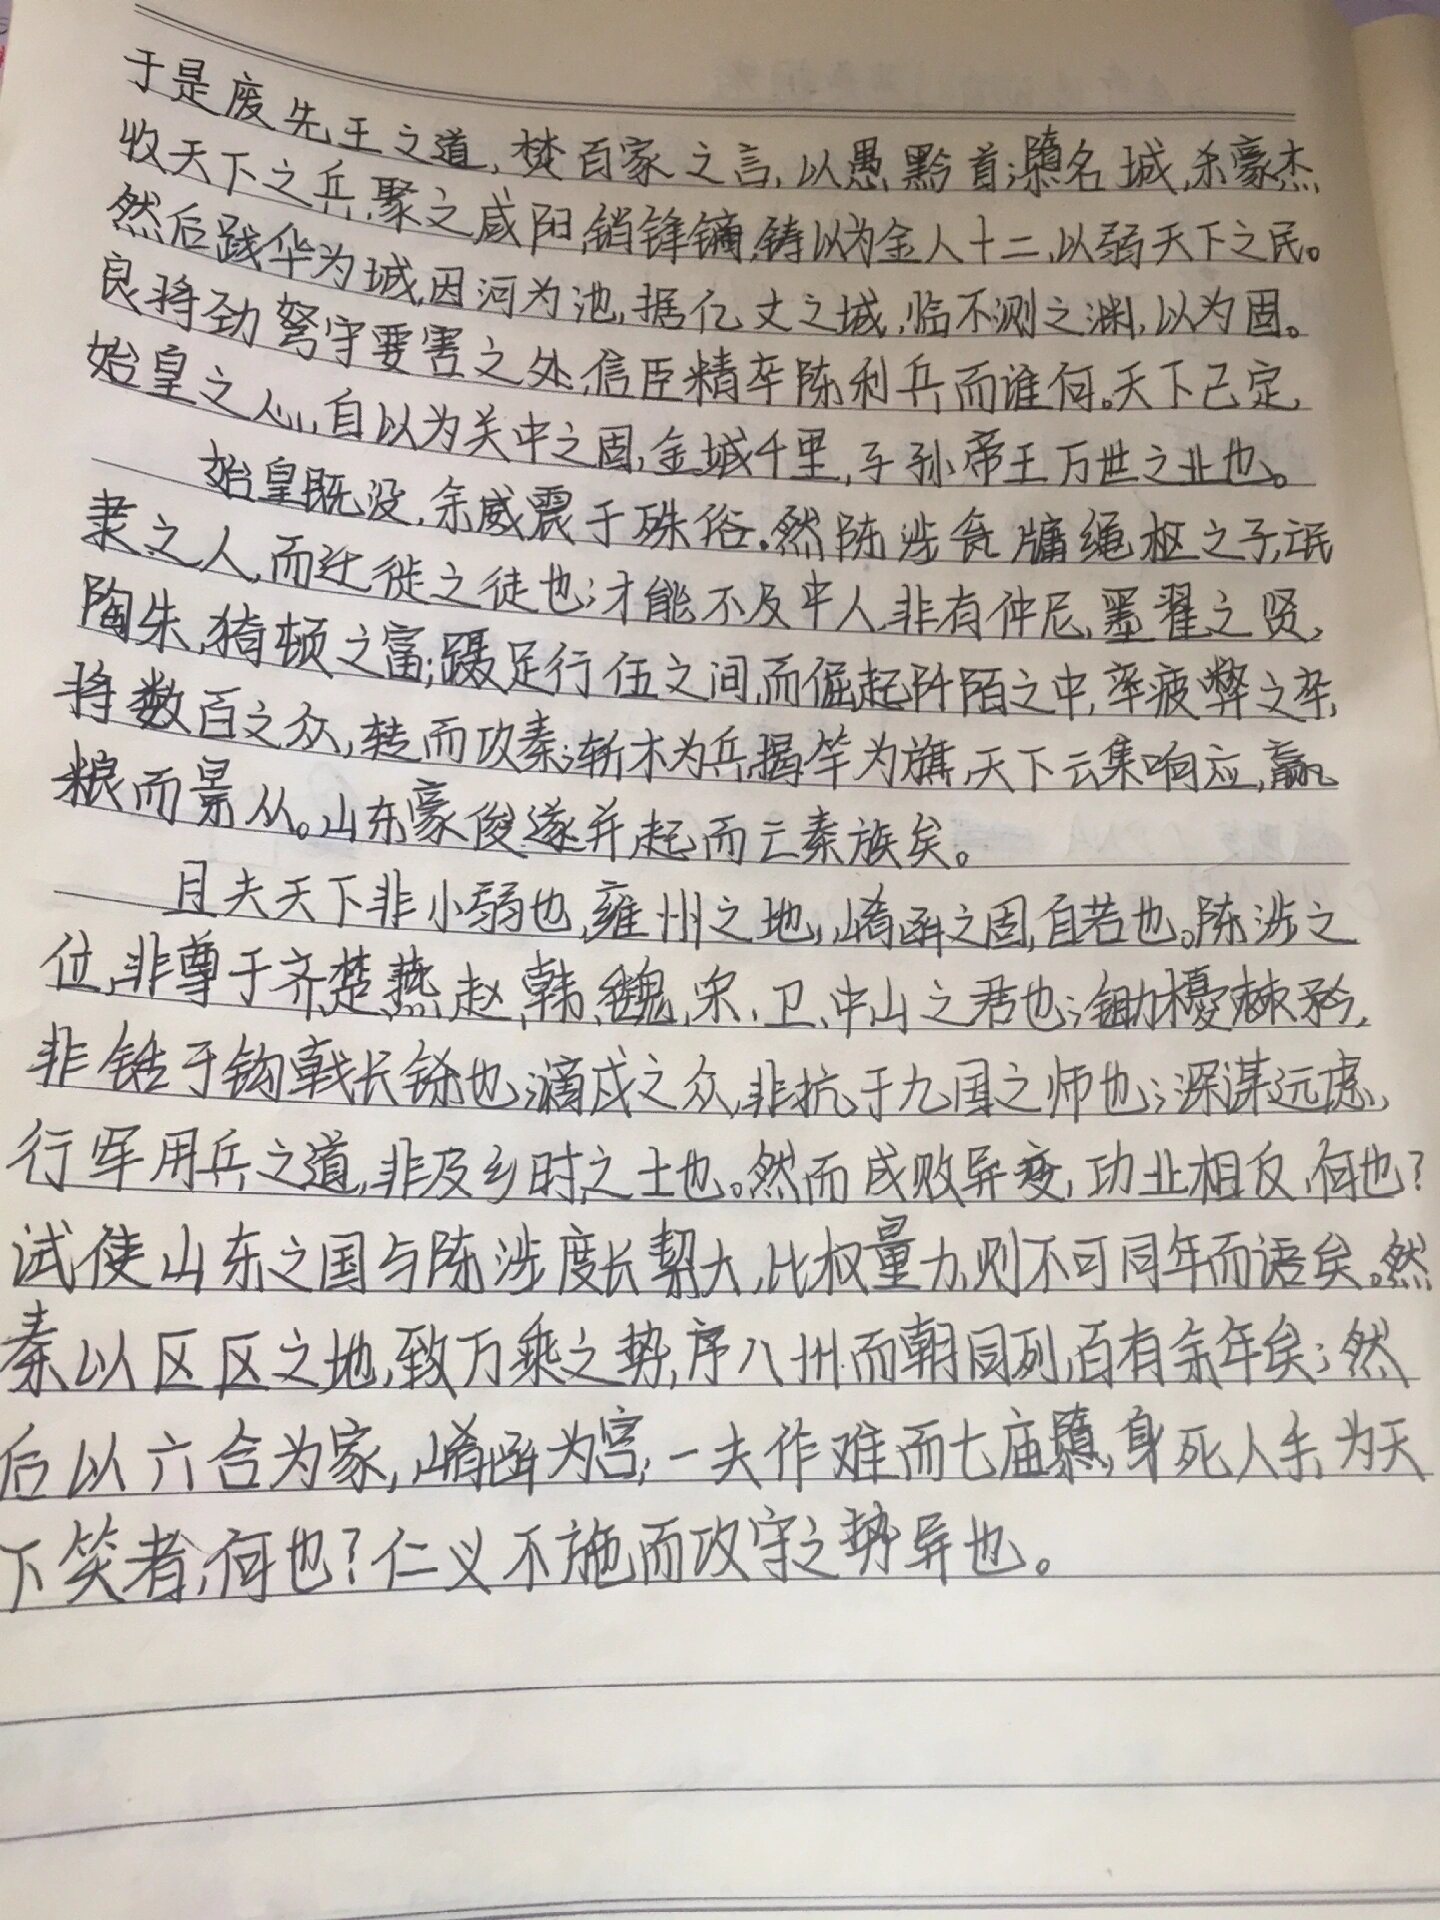 于是废先王之道,焚百家之言,以愚黔首;隳名城,杀豪杰,
收天下之兵,聚之咸阳,销锋镝,铸以为金人十二,以弱天下之民。
然后践华为城,因河为池,据亿丈之城,临不测之渊,以为固。
良将劲弩守要害之处,信臣精卒陈利兵而谁何。天下已定,
始皇之心,自以为关中之固,金城千里,子孙帝王万世之业也。
始皇既没,余威震于殊俗。然陈涉瓮牖绳枢之子,氓
隶之人,而迁徙之徒也;才能不及中人,非有仲尼,墨翟之贤,
陶朱,猗顿之富;蹑足行伍之间,而倔起阡陌之中,率疲弊之卒,
将数百之众,转而攻秦;斩木为兵,揭竿为旗,天下云集响应,赢
粮而景从。山东豪俊遂并起而亡秦族矣。
且夫天下非小弱也,雍州之地,崤函之固,自若也。陈涉之
位,非尊于齐、楚、燕、赵、韩、魏、宋、卫、中山之君也;锄櫌棘矜,
非铦于钩戟长铩也;谪戍之众,非抗于九国之师也;深谋远虑,
行军用兵之道,非及乡时之士也。然而成败异变,功业相反,何也?
试使山东之国与陈涉度长絜大,比权量力,则不可同年而语矣。然
秦以区区之地,致万乘之势,序八州而朝同列,百有余年矣;然
后以六合为家,崤函为宫;一夫作难而七庙隳,身死人手,为天
下笑者,何也?仁义不施而攻守之势异也。